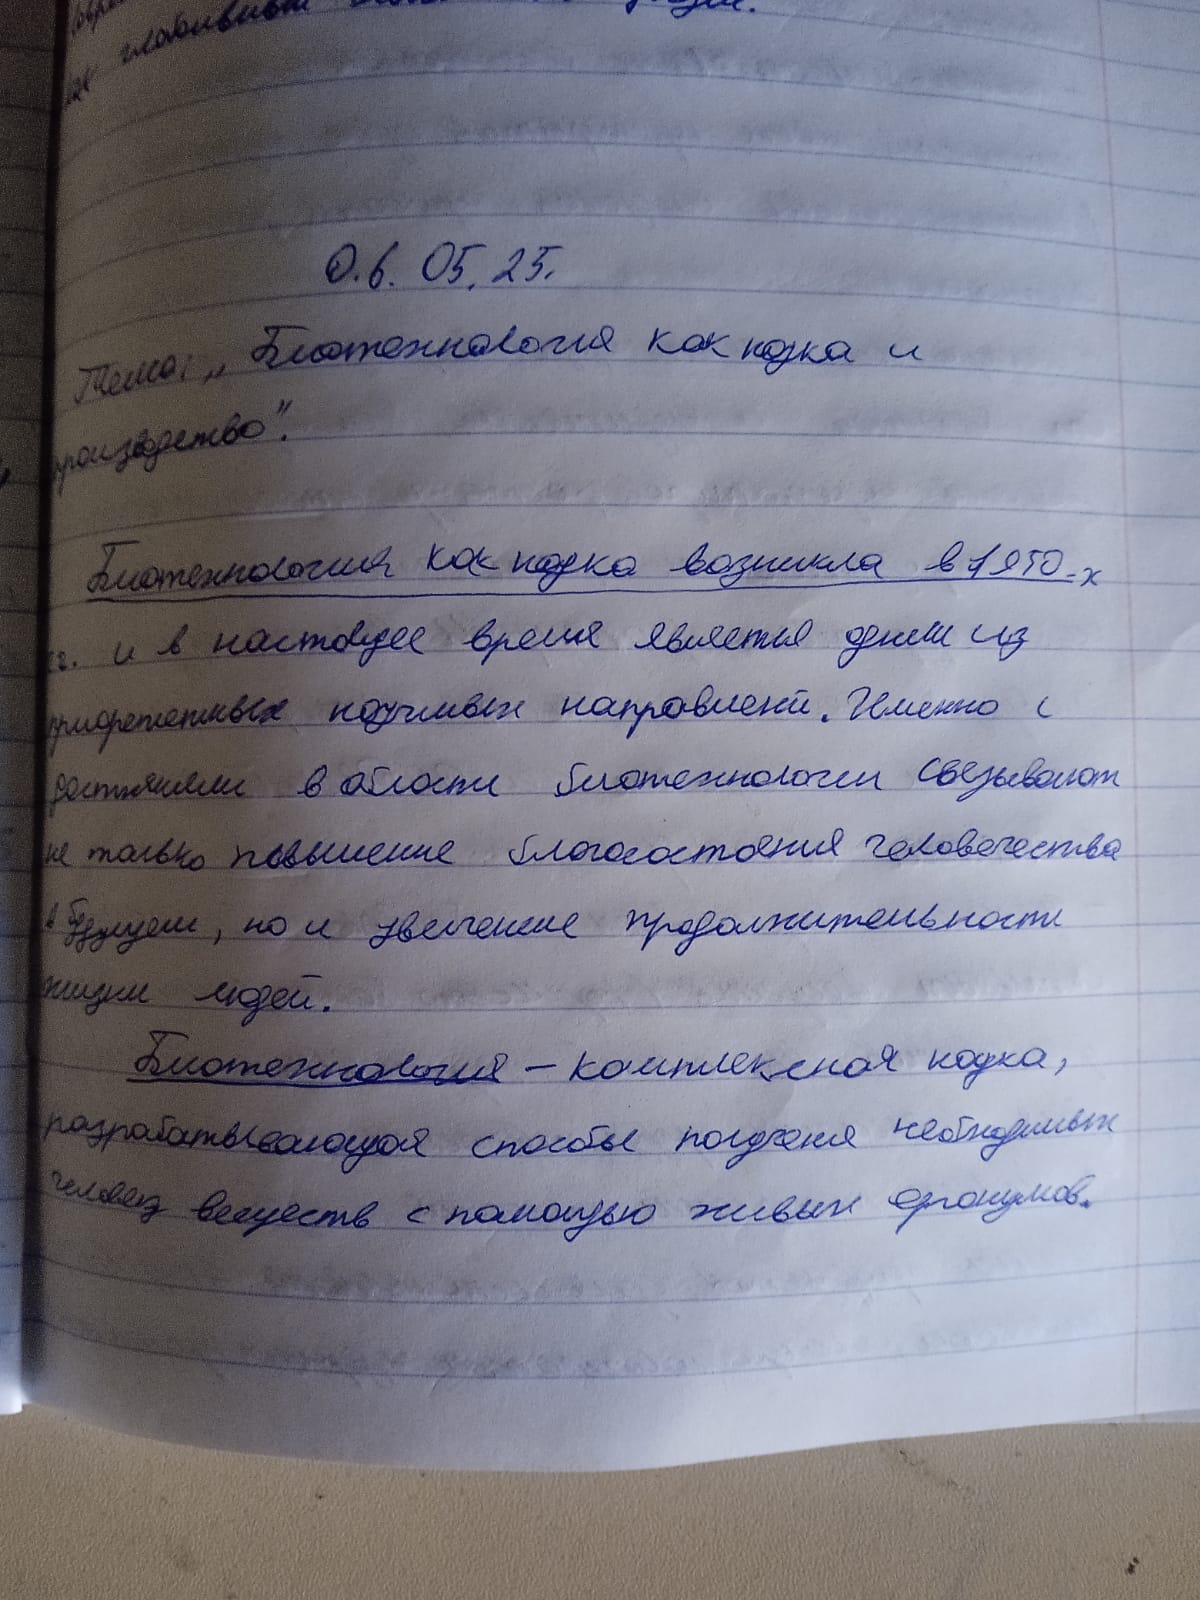 главных
0.6. 05. 25.
Тема: „Биотехнология как наука и
производство".
Биотехнология как наука возникла в 1950-х
гг. и в настоящее время является одним из
приоретентных научных направлений. Именно с
достяниями в области биотехнологии связывают
не только повышение благосостояния человечества
в будущем, но и увеличение продолжительности
жизни людей.
Биотехнология – комплексная наука,
разрабатывающая способы получения необходимых
человеку веществ с помощью живых организмов.